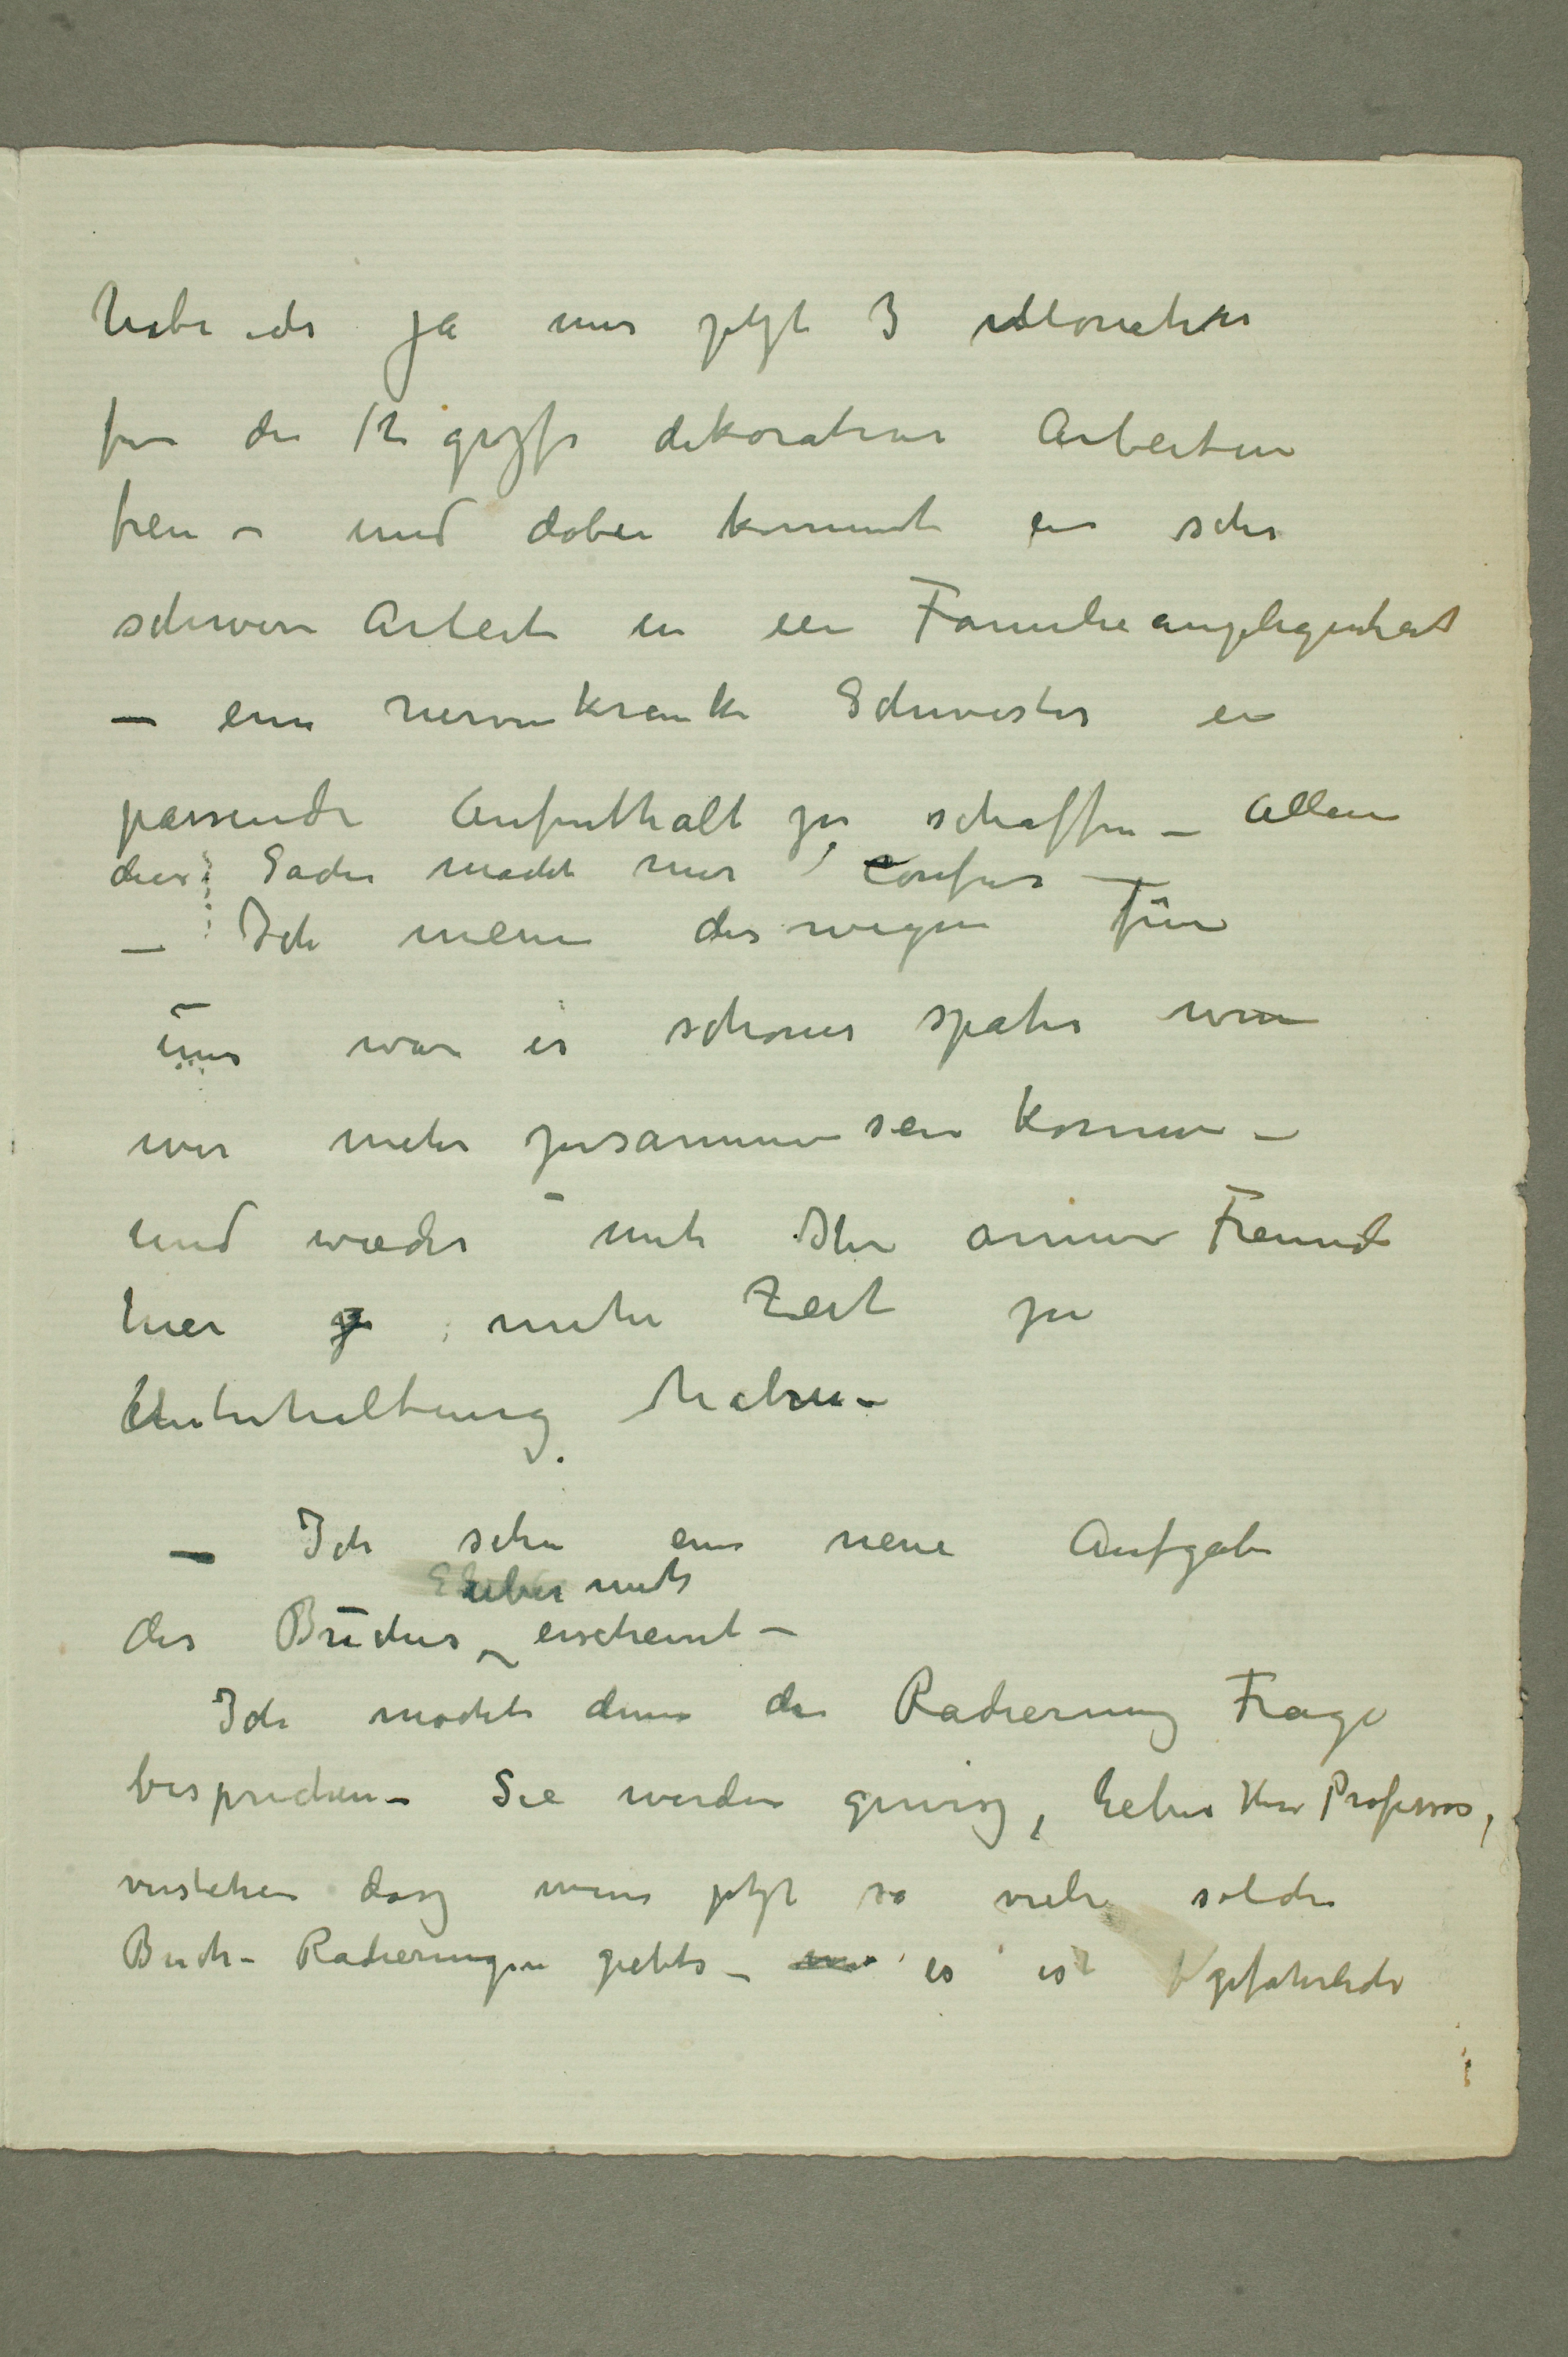 habe ich ja nur jetzt 3 Monathe
fur die 12 grosse dekorative Arbeiten
frei – und dabei kommt ein sehr
schwere Arbeit in ein Familieangelegenheit
– eine nervenkranke Schwester ein
passende Aufenthalt zu schaffen – Allein
diese Sache macht mir confus –
– Ich meine deswegen für
uns war es schoner spater wenn
wir mehr zusammen sein konnen –
und wieder mit Ihr armer Freund
hier mehr Zeit zu
Unterhaltung haben –
– Ich sehe eine neue Aufgabe
des Buches über mich erscheint –
Ich mochte denn die Radierung Frage
besprechen – Sie werden gewisz, lieber Herr Professor,
verstehen dasz wenn jetzt so viele solche
Buch-Radierungen giebts – es ist gefahrlich